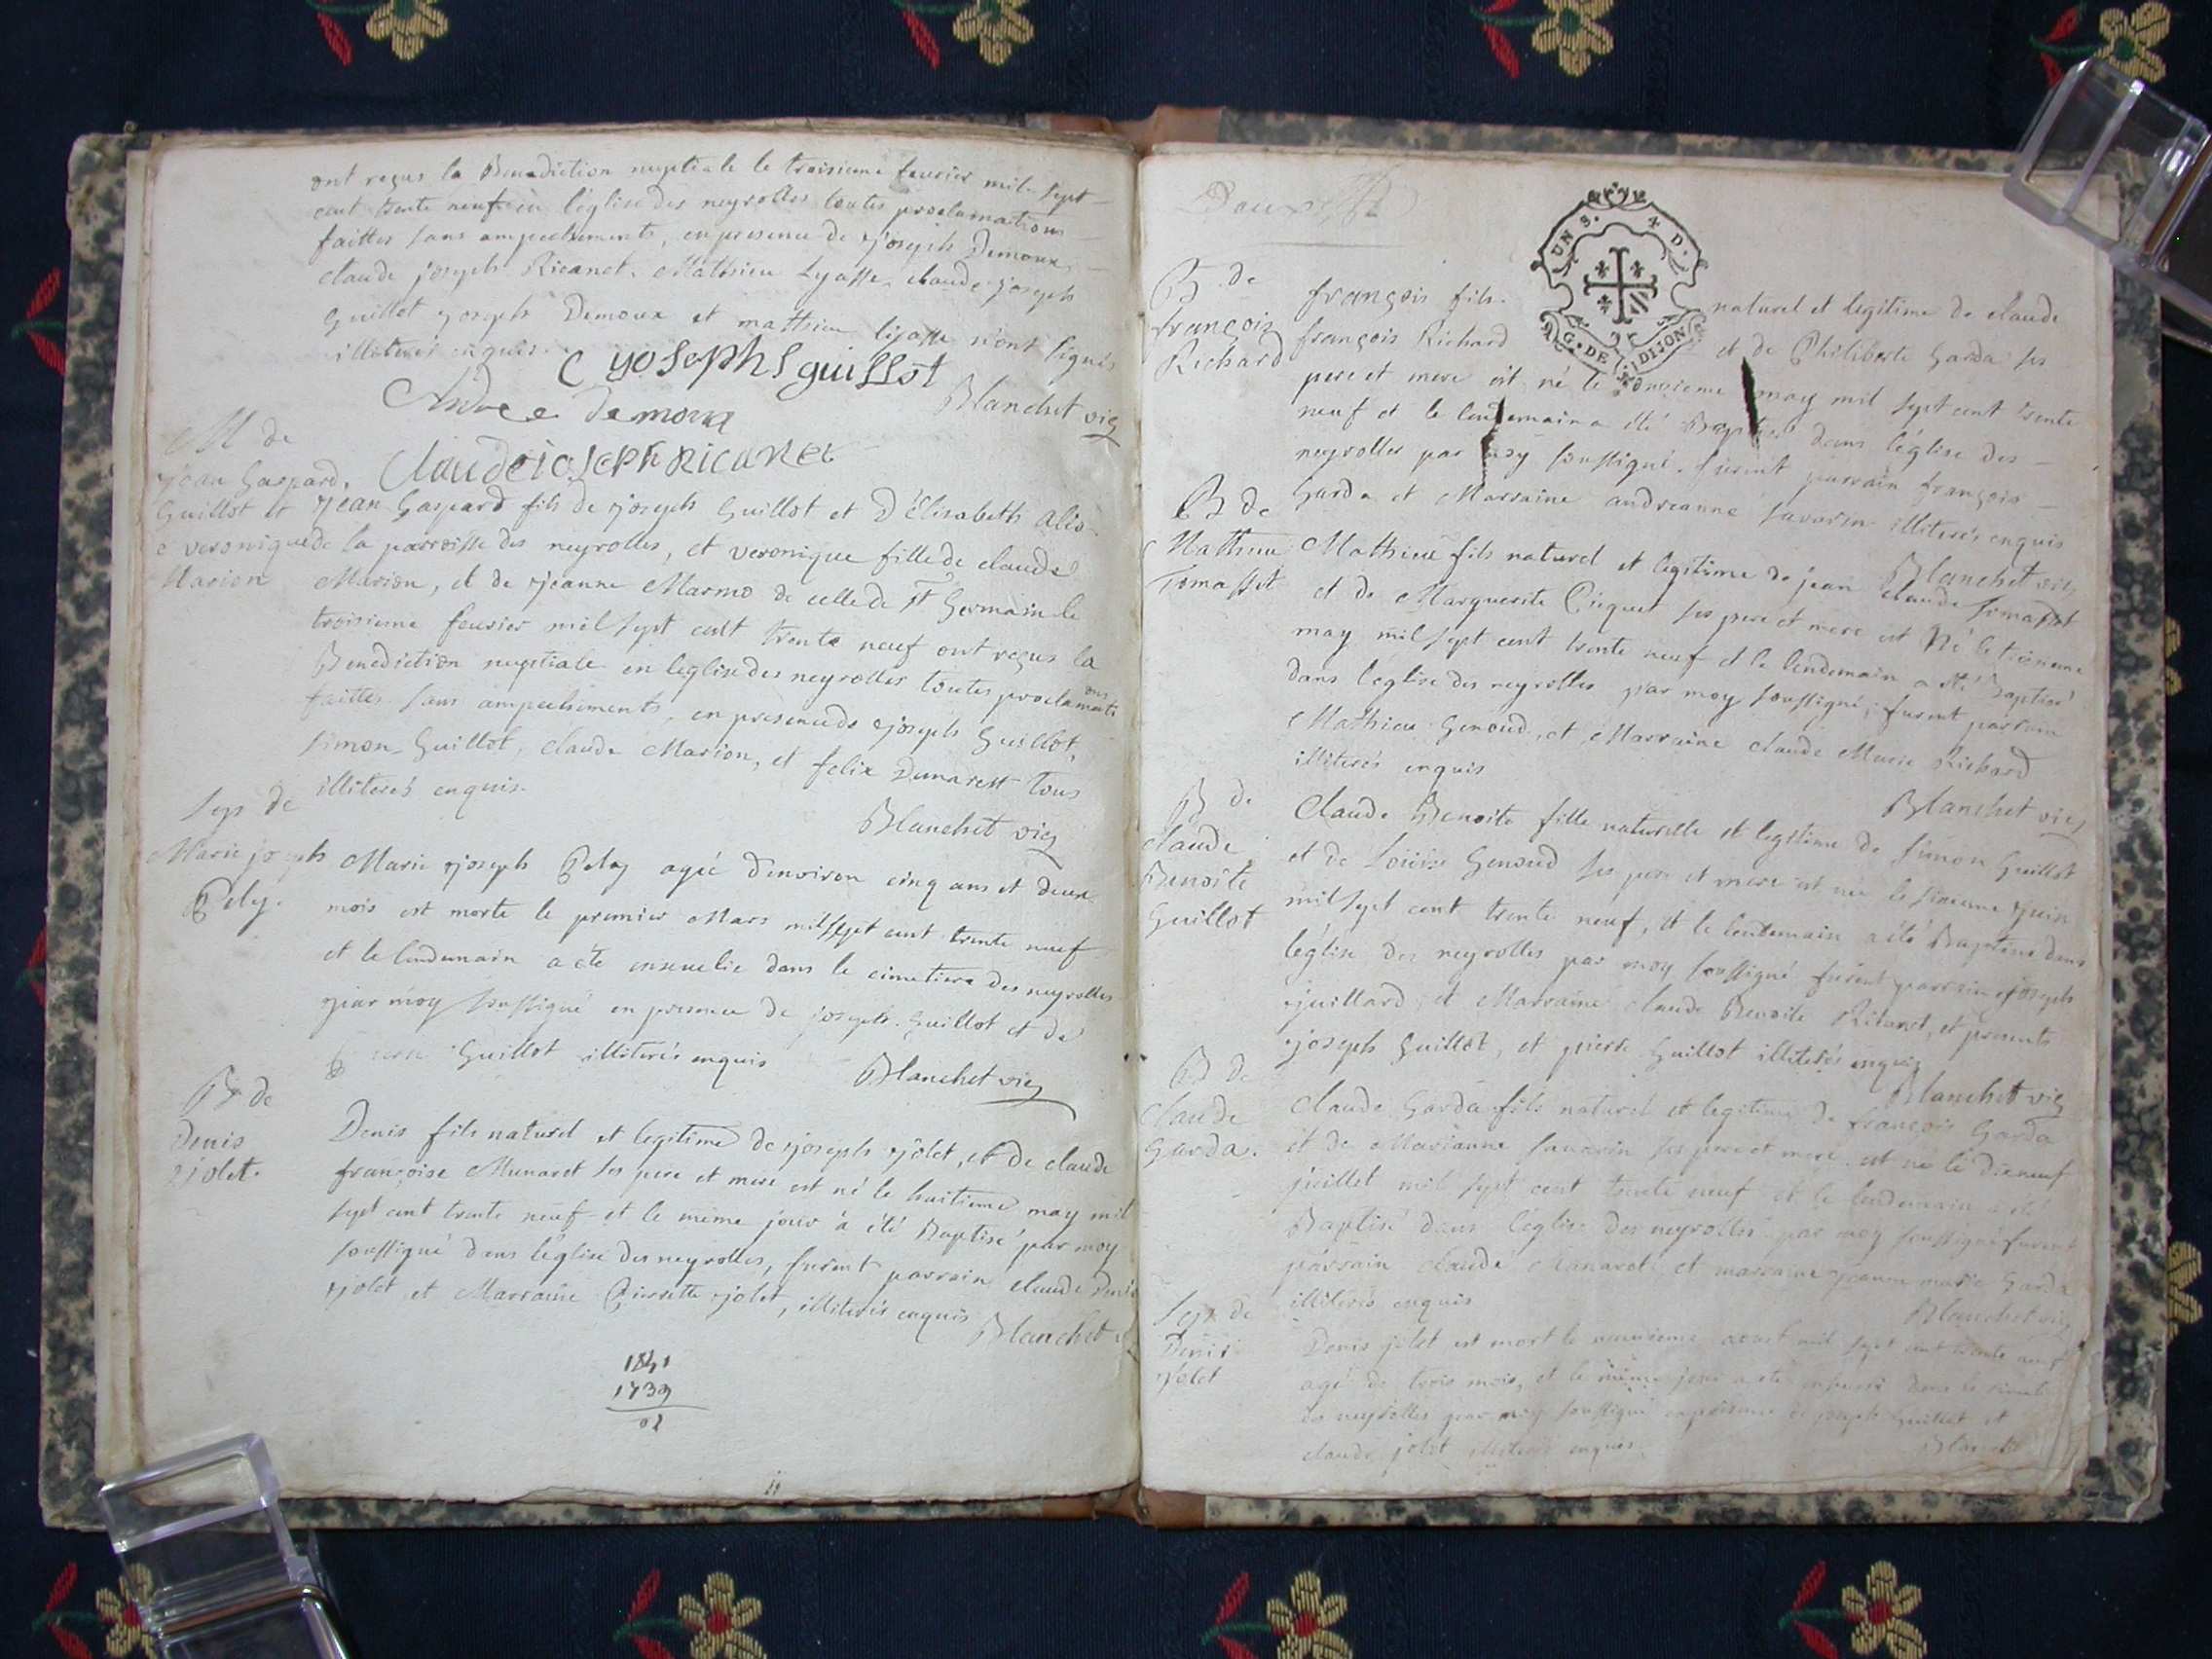 ont reçus la Benediction nuptiale le troisieme feurier mil sept
cent trente neuf en l'église des neyrolles toutes proclamations
faittes sans ampechements, en presence de joseph Demoux,
claude joseph Ricanet, Mathieu Lyasse, claude joseph
Guillot joseph Demoux et mathieu lyasse n'ont signés
illiterés enquis.
C yoseph guillot
Andre demoux
Blanchet vic
claude ioseph ricanet
M de
jean Gaspard
Guillot et
veronique
Marion
jean Gaspard fils de joseph Guillot et d'Elisabeth
de la parroisse des neyrolles, et veronique fille de claude
Marion, et de jeanne Marmo de celle de st Germain le
troisieme feurier mil sept cent trente neuf ont reçus la
Benediction nuptiale en leglise des neyrolles toutes proclamations
faittes sans ampechements, en presence de joseph Guillot,
simon Guillot, claude Marion, et felix Dunarest tous
illiterés enquis.
Blanchet vic
Sep de
Marie joseph
Pely.
Marie joseph Pely agée d'environ cinq ans et deux
mois est morte le premier Mars mil sept cent trente neuf
et le lendemain a éte enseuelie dans le cimetiere des neyrolles
par moy soussigné en presence de joseph Guillot et de
Guillot illiterés enquis
Blanchet vic
B de
Denis
jolet.
Denis fils naturel et legitime de joseph jolet, et de claude
françoise Munaret ses pere et mere est né le huitieme may mil
sept cent trente neuf et le même jour a été Baptisé par moy
soussigné dans l'église des neyrolles, furent parrain claude Denis
jolet et Marraine Pierrette jolet, illiterés enquis
Blanchet
1841
1739
02
Deux
UN S. 4 D.
G. DE DIJON
B de
françois
Richard
françois fils naturel et legitime de claude
françois Richard et de Philiberte Garda ses
pere et mere est né le onzieme may mil sept cent trente
neuf et le lendemain a été Baptisé dans l'église des
neyrolles par moy soussigné. furent parrain françois
Garda et Marraine andreanne savarin illiterés enquis
Blanchet vic
B de
Mathieu
Tomasset
Mathieu fils naturel et legitime de jean claude Tomasset
et de Marguerite Picquet ses pere et mere est Né le
may mil sept cent trente neuf et le lendemain a été baptisé
dans l'église des neyrolles par moy soussigné, furent parrain
Mathieu Genoud, et Marraine claude Marie Richard
illiterés enquis
Blanchet vic
B de
claude
Benoite
Guillot
Claude Benoite fille naturelle et legitime de simon Guillot
et de Loüise Genoud ses pere et mere est née le sixieme juin
mil sept cent trente neuf, et le lendemain a été Baptisée dans
l'église des neyrolles par moy soussigné furent parrain joseph
juillard et Marraine claude Benoite Ricanet, et presents
joseph Guillot, et pierre Guillot illiterés enquis
Blanchet vic
B de
Claude
Garda.
Claude Garda fils naturel et legitime de françois Garda
et de Marianne savarin ses pere et mere est né le dixneuf
juillet mil sept cent trente neuf et le lendemain a été
Baptisé dans l'église des neyrolles par moy soussigné furent
parrain claude Munaret et marraine jeanne marie Garda
illiterés enquis
Blanchet vic
Sep de
Denis
jolet
Denis jolet est mort le neuvieme aoust mil sept cent trente neuf
agé de trois mois, et le même jour a été dans le
des neyrolles par moy soussigné en presence de joseph Guillot et
claude jolet illiterés enquis